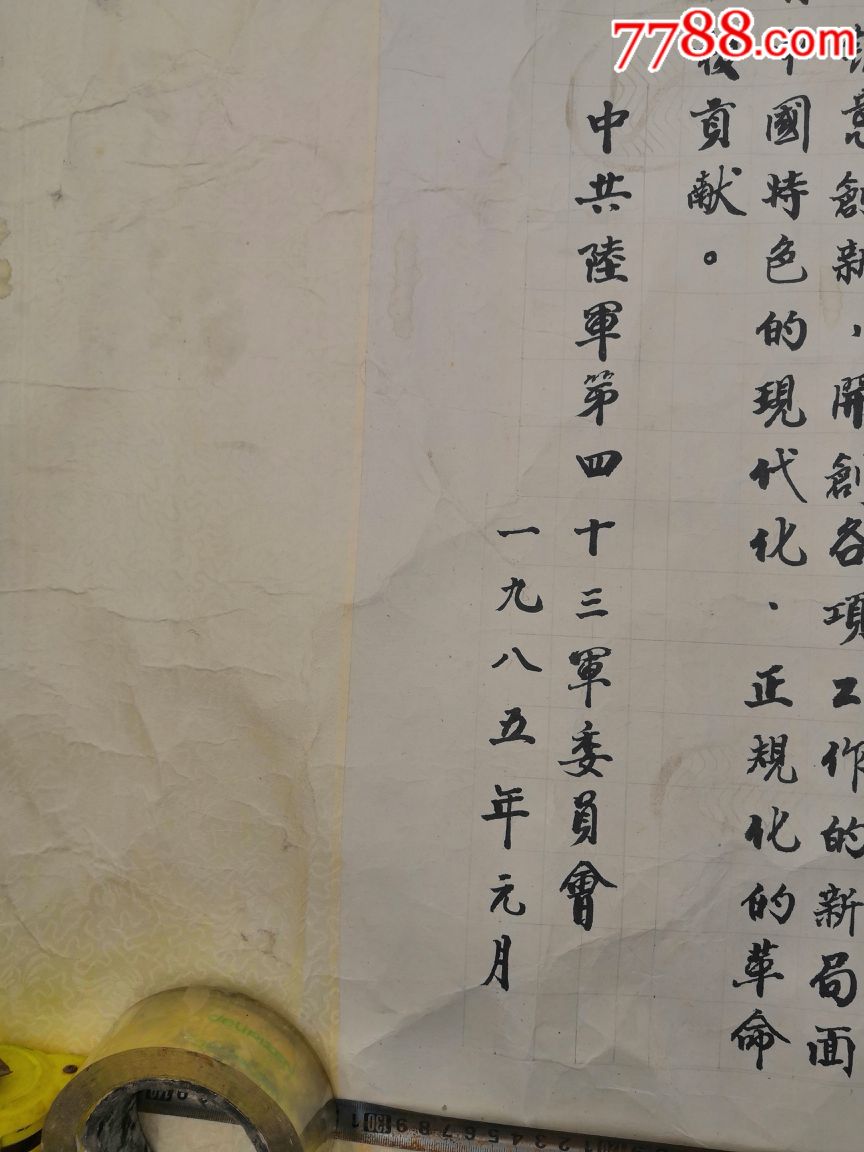 7788.com
意創新，開創各項工作的新局面
中國時色的現代化、正規化的革命
貢献。
中共陸軍第四十三軍委員會
一九八五年元月